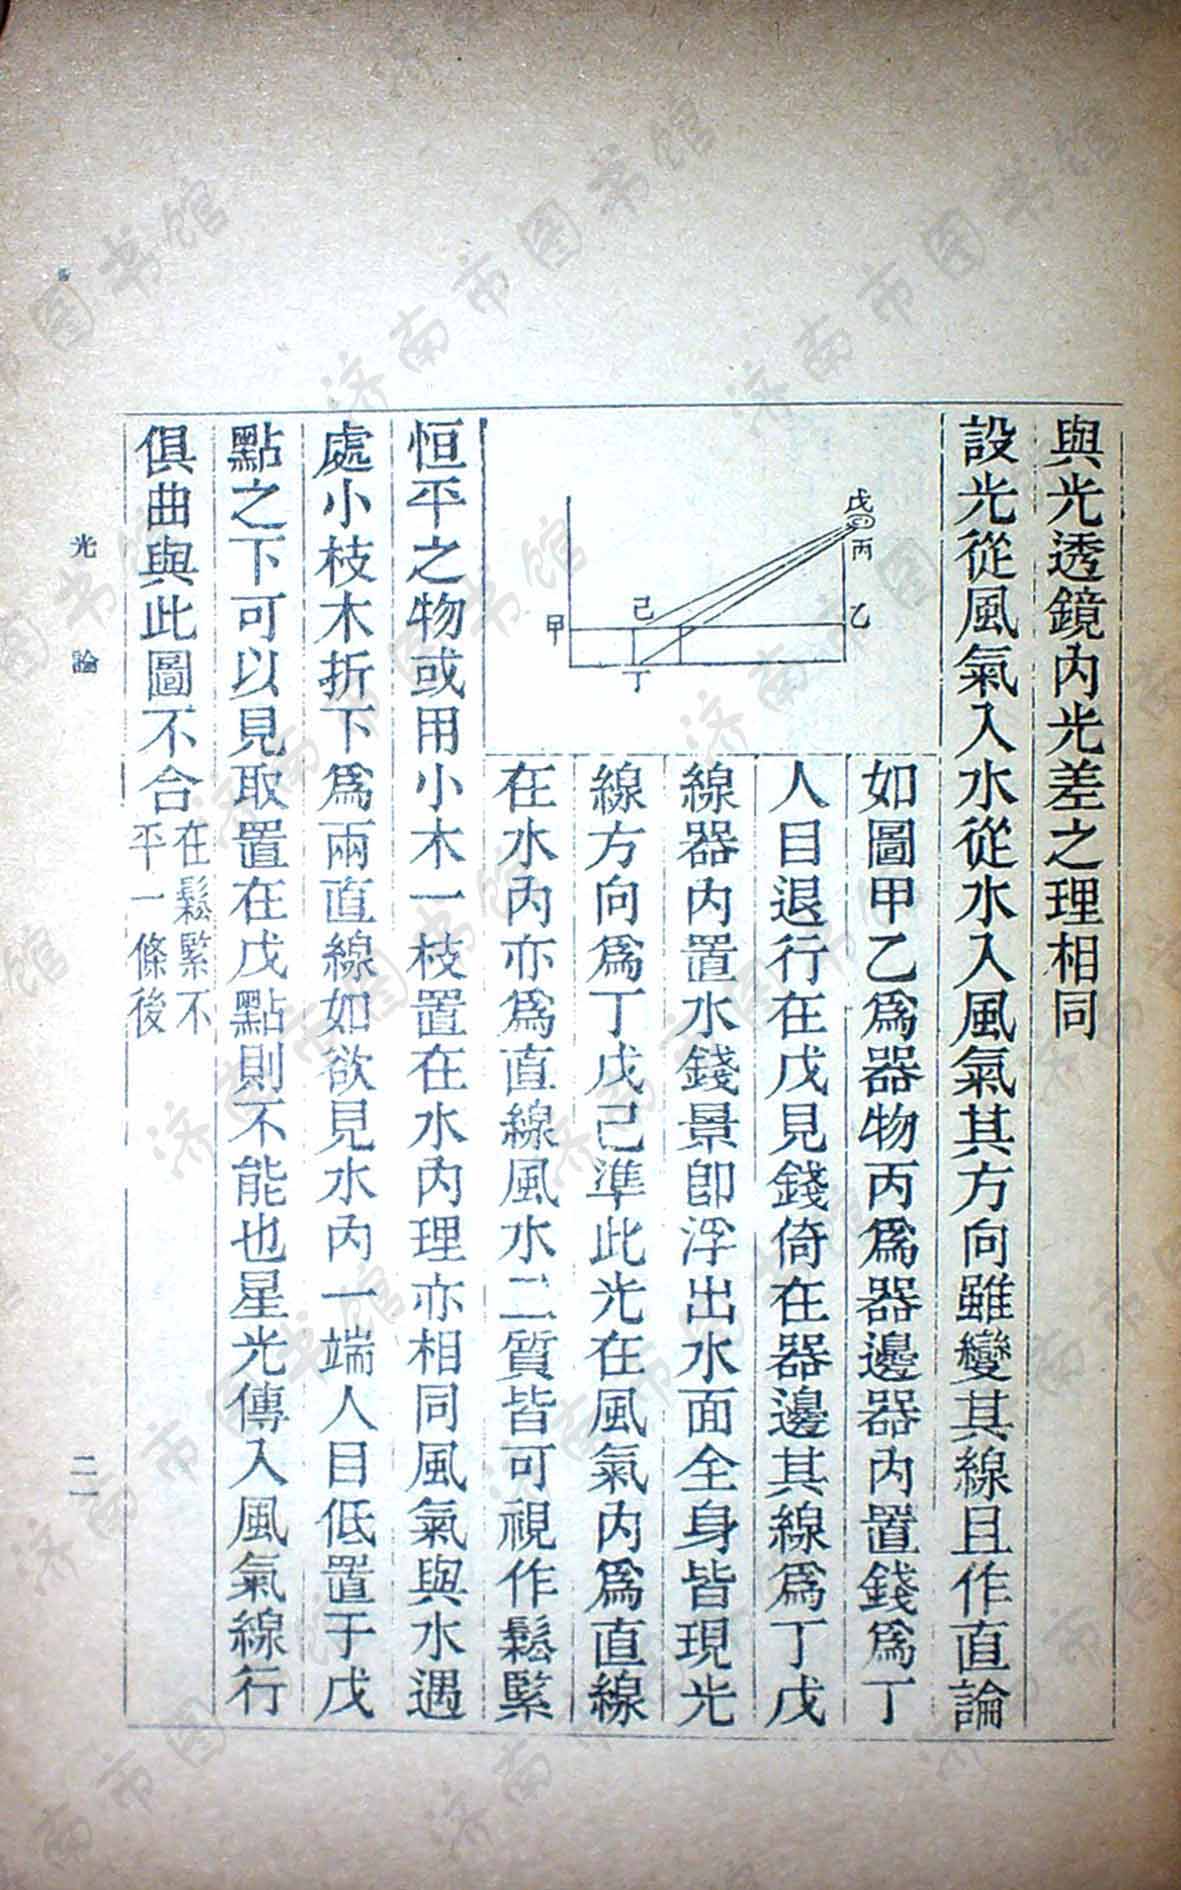 與光透鏡內光差之理相同
設光從風氣入水從水入風氣其方向雖變其線且作直論
戊
丙
己
甲
乙
丁
如圖甲乙爲器物丙爲器邊器內置錢爲丁
人目退行在戊見錢倚在器邊其線爲丁戊
線器內置水錢景卽浮出水面全身皆現光
線方向爲丁戊己準此光在風氣內爲直線
在水內亦爲直線風水二質皆可視作鬆緊
恒平之物或用小木一枝置在水內理亦相同風氣與水遇
處小枝木折下爲兩直線如欲見水內一端人目低置于戊
點之下可以見取置在戊點則不能也星光傳入風氣線行
俱曲與此圖不合在鬆緊不
平一條後
光論
二一
济南市图书馆